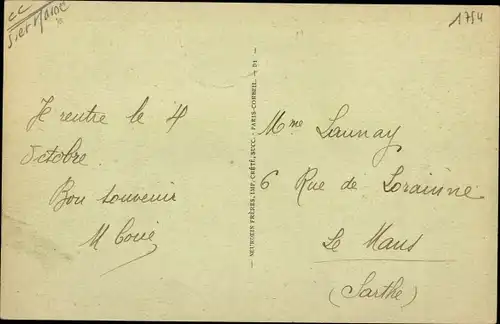 CC
1754
Je rentre le 4
Octobre.
Bon souvenir
M
NEURDEIN FRÈRES, IMP. CRÉTÉ, SUCC. - PARIS-CORBEIL. - D1
Mme Launay
6 Rue de Lorainne
Le Mans
(Sarthe)